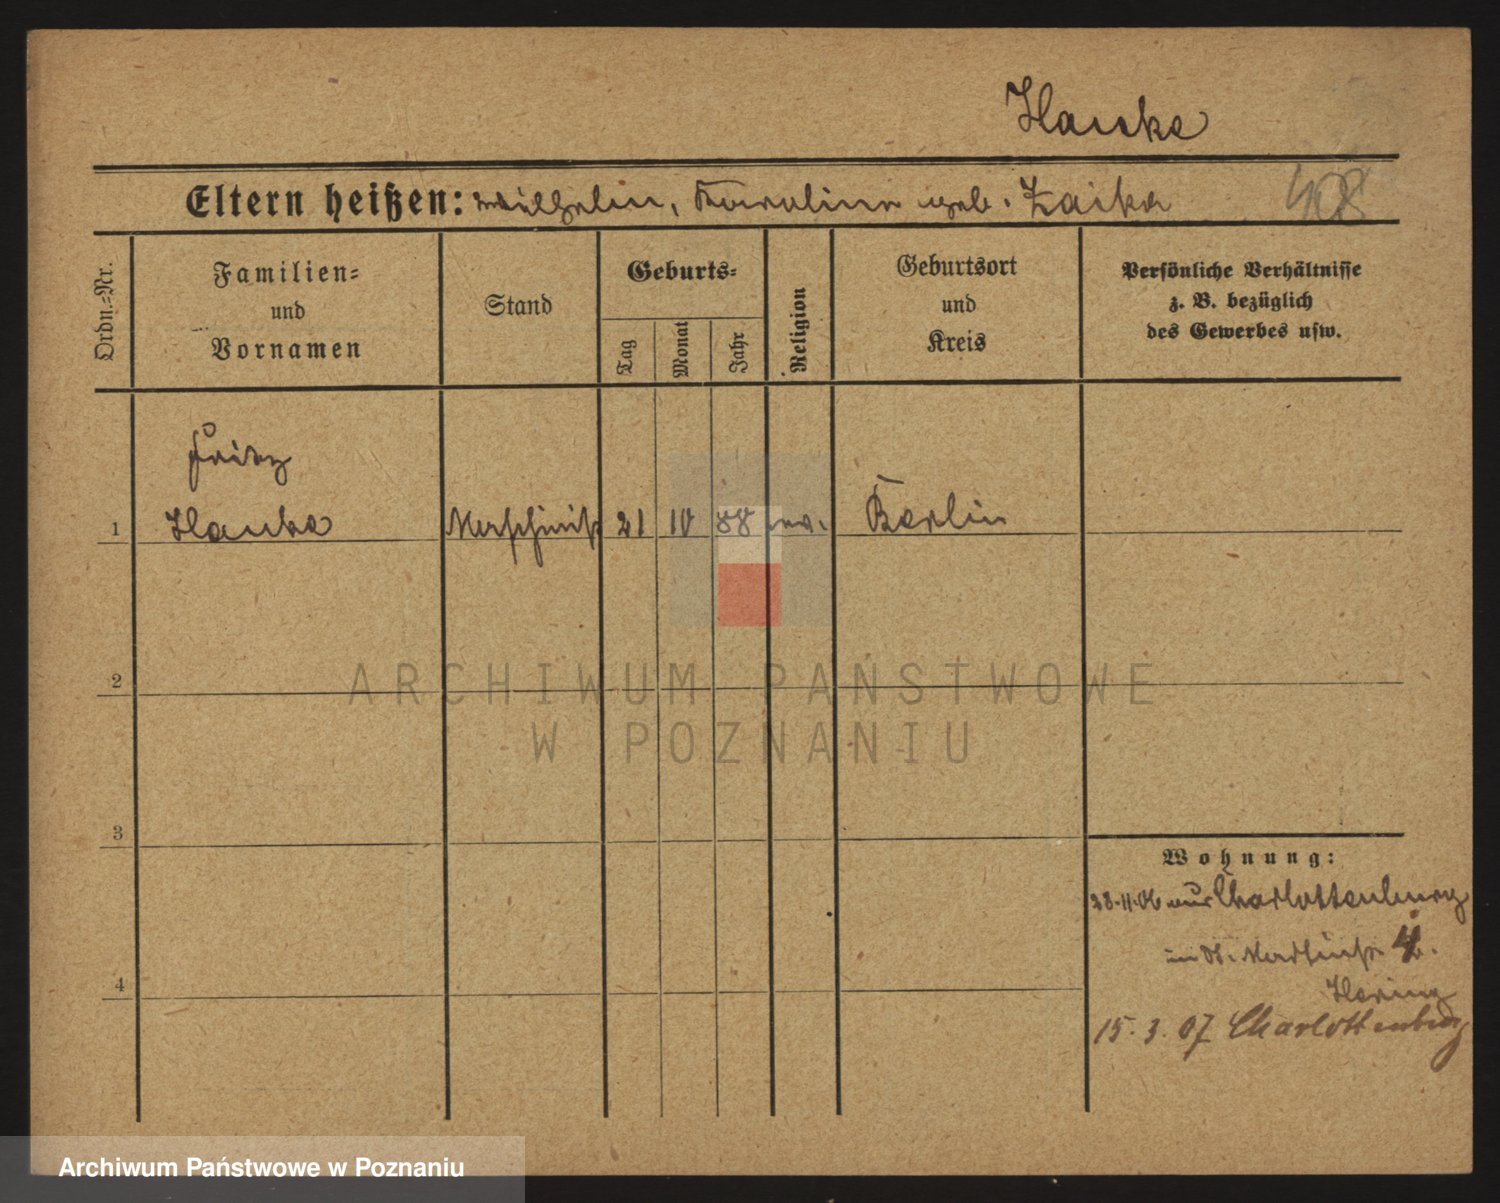 Hanke
Eltern heißen: Wilhelm, Karoline geb. Zaika
408
Ordn.=Nr.
Familien=
und
Vornamen
Stand
Geburts=
Tag
Monat
Jahr
Religion
Geburtsort
und
Kreis
Persönliche Verhältnisse
z. B. bezüglich
des Gewerbes usw.
Fritz
1 Hanke Maschinist 21 10 88 ev. Berlin
2
ARCHIWUM PAŃSTWOWE
W POZNANIU
3
Wohnung:
28.11.06 aus Charlottenburg
in St. Martinstr. 4
4
Hering
15.3.07 Charlottenburg
Archiwum Państwowe w Poznaniu